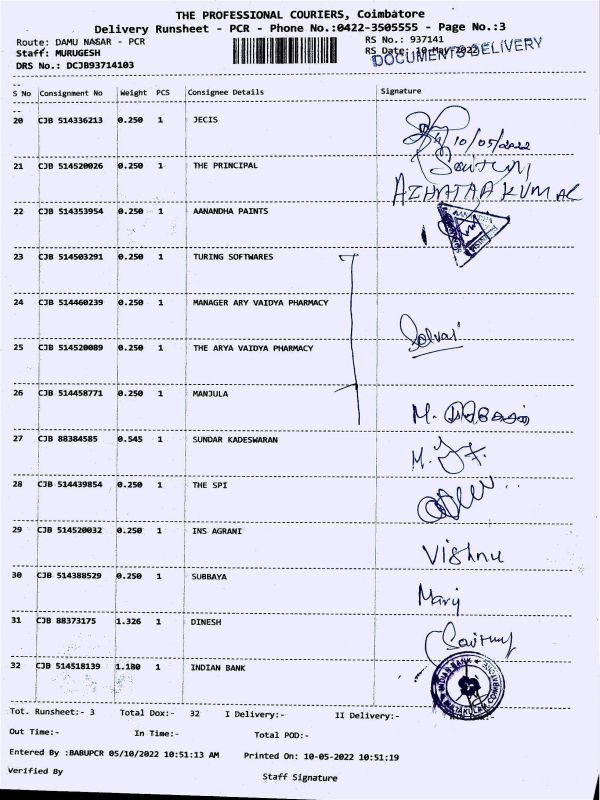 THE PROFESSIONAL COURIERS, Coimbatore
Delivery Runsheet - PCR - Phone No.:0422-3505555 - Page No.:3
Route: DAMU NAGAR - PCR RS No.: 937141
Staff: MURUGESH RS Date: 10-May-2022
DOCUMENTS DELIVERY
DRS No.: DCJB93714103
S No Consignment No Weight PCS Consignee Details Signature
20 CJB 514336213 0.250 1 JECIS
10/05/2022
21 CJB 514520026 0.250 1 THE PRINCIPAL
22 CJB 514353954 0.250 1 AANANDHA PAINTS
23 CJB 514503291 0.250 1 TURING SOFTWARES
24 CJB 514460239 0.250 1 MANAGER ARY VAIDYA PHARMACY
25 CJB 514520089 0.250 1 THE ARYA VAIDYA PHARMACY
26 CJB 514458771 0.250 1 MANJULA
M.
27 CJB 88384585 0.545 1 SUNDAR KADESWARAN
28 CJB 514439854 0.250 1 THE SPI
29 CJB 514520032 0.250 1 INS AGRANI
Vishnu
30 CJB 514388529 0.250 1 SUBBAYA
Mary
31 CJB 88373175 1.326 1 DINESH
32 CJB 514518139 1.180 1 INDIAN BANK
INDIAN BANK
Tot. Runsheet:- 3 Total Dox:- 32 I Delivery:- II Delivery:-
Out Time:- In Time:- Total POD:-
Entered By :BABUPCR 05/10/2022 10:51:13 AM Printed On: 10-05-2022 10:51:19
Verified By Staff Signature